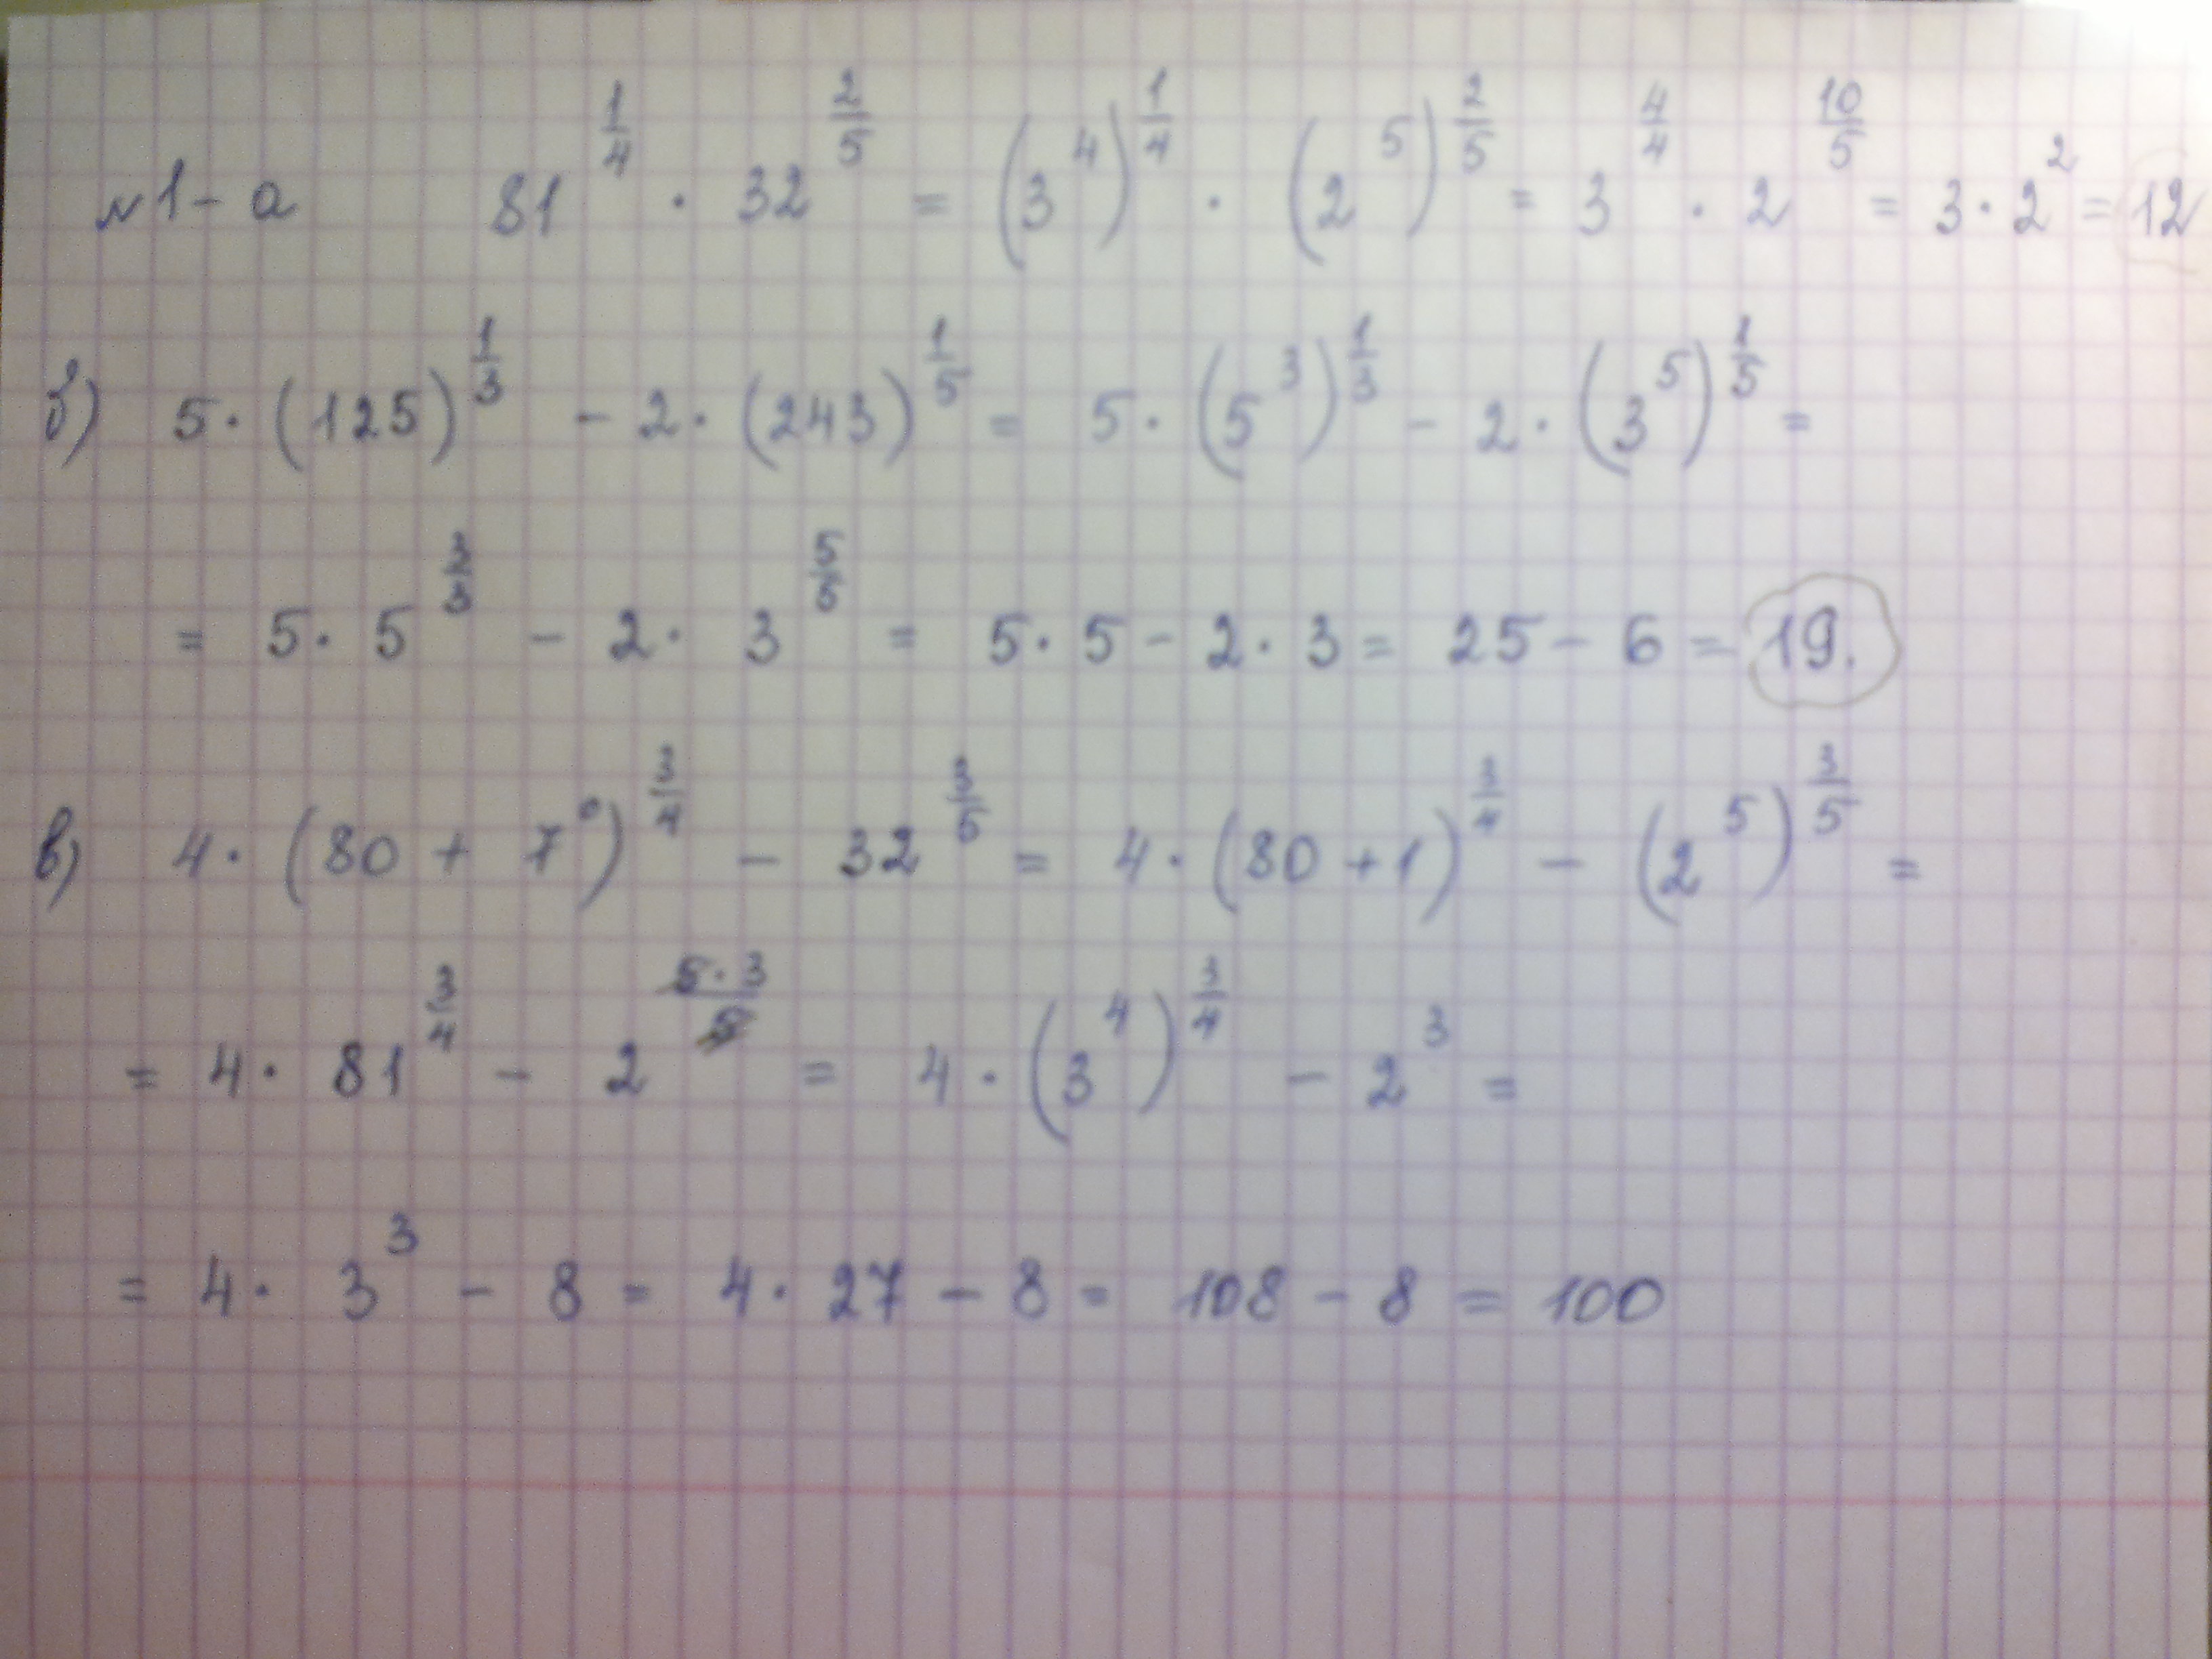 №1 - а 81^(1/4) · 32^(2/5) = (3^4)^(1/4) · (2^5)^(2/5) = 3^(4/4) · 2^(10/5) = 3 · 2^2 = 12
б) 5 · (125)^(1/3) - 2 · (243)^(1/5) = 5 · (5^3)^(1/3) - 2 · (3^5)^(1/5) =
= 5 · 5^(3/3) - 2 · 3^(5/5) = 5 · 5 - 2 · 3 = 25 - 6 = 19.
в) 4 · (80 + 7^0)^(3/4) - 32^(3/5) = 4 · (80 + 1)^(3/4) - (2^5)^(3/5) =
= 4 · 81^(3/4) - 2^(5·3/5) = 4 · (3^4)^(3/4) - 2^3 =
= 4 · 3^3 - 8 = 4 · 27 - 8 = 108 - 8 = 100